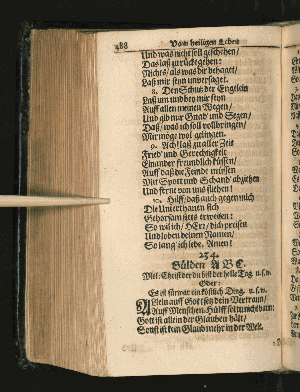 488 Vom heiligen Leben
Und was nicht soll geschehen/
Das laß zurücke gehen:
Nichts/ als was dir behaget/
Laß mir seyn unversaget.
8. Den Schutz der Englein
Laß um und bey mir seyn
Auff allen meinen Wegen/
Und gib nur Gnad und Segen/
Daß/ was ich soll vollbringen/
Mir möge wol gelingen.
9. Ach laß zu aller Zeit
Fried und Gerechtigkeit
Einander freundlich küssen/
Auff daß die Feinde müssen
Mit Spott und Schand abziehen
Und ferne von uns fliehen!
10. Hilff/ daß auch gegen mich
Die Unterthanen sich
Gehorsam stets erweisen:
So wil ich/ HErr/ dich preisen
Und loben deinen Namen/
So lang ich lebe. Amen!
234.
Gülden A B C.
Mel: Christ der du bist der helle Tag. u.s.w.
Oder:
Es ist fürwar ein köstlich Ding. u.s.w.
Allein auff Gott setz dein Vertraun/
Auff Menschen Hülff solt du nicht baun:
Gott ist allein der Glauben hält/
Sonst ist kein Glaub mehr in der Welt.